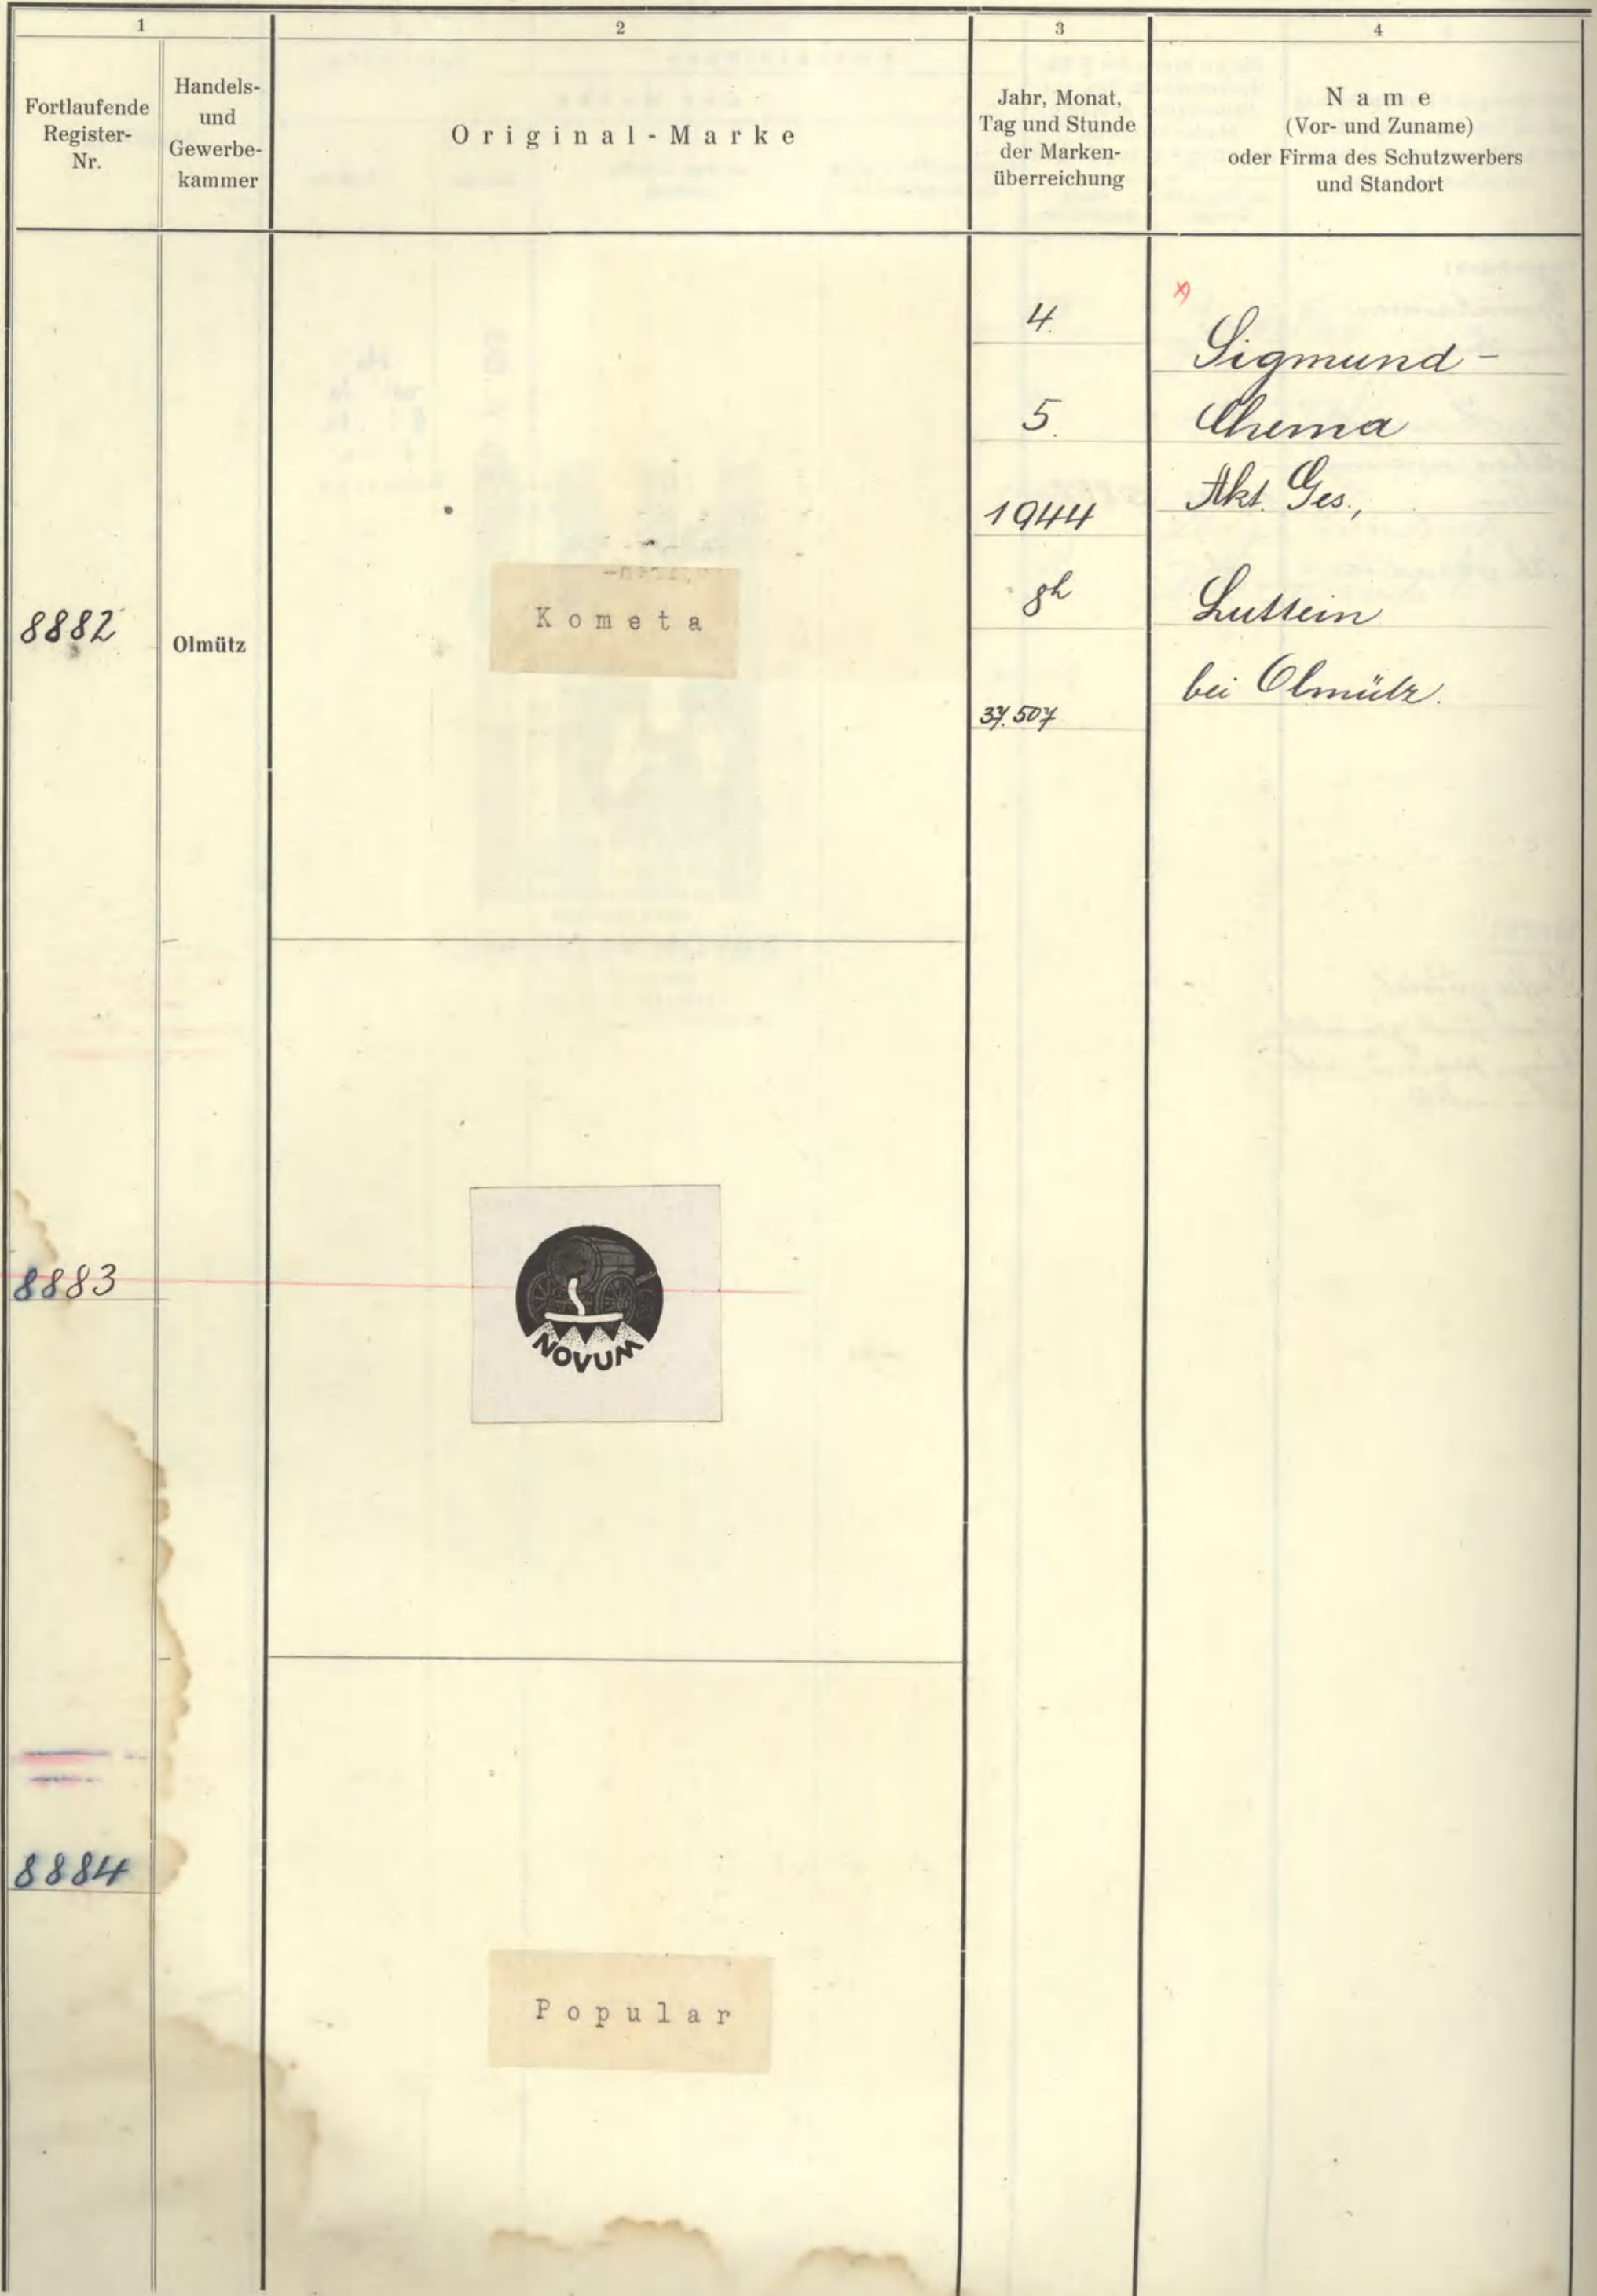 1
2
3
4
Fortlaufende
Register-
Nr.
Handels-
und
Gewerbe-
kammer
Original-Marke
Jahr, Monat,
Tag und Stunde
der Marken-
überreichung
Name
(Vor- und Zuname)
oder Firma des Schutzwerbers
und Standort
8882
Olmütz
Kometa
4.
5.
1944
8h
37.507
x)
Sigmund-
Chema
Akt. Ges.,
Luttein
bei Olmütz.
8883
NOVUM
8884
Popular